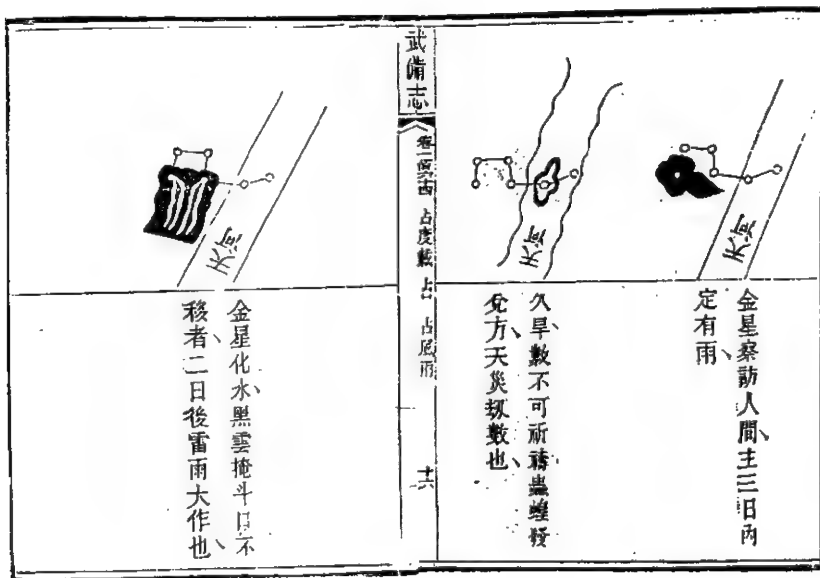 天河
天河
金星察訪人間主三日內
定有雨
久旱數不可祈禱蟲蝗發
兊方天災刼數也
武備志
卷一百六十四 占度載 占 占風雨
十六
天河
金星化水黑雲掩斗口不
移者二日後雷雨大作也